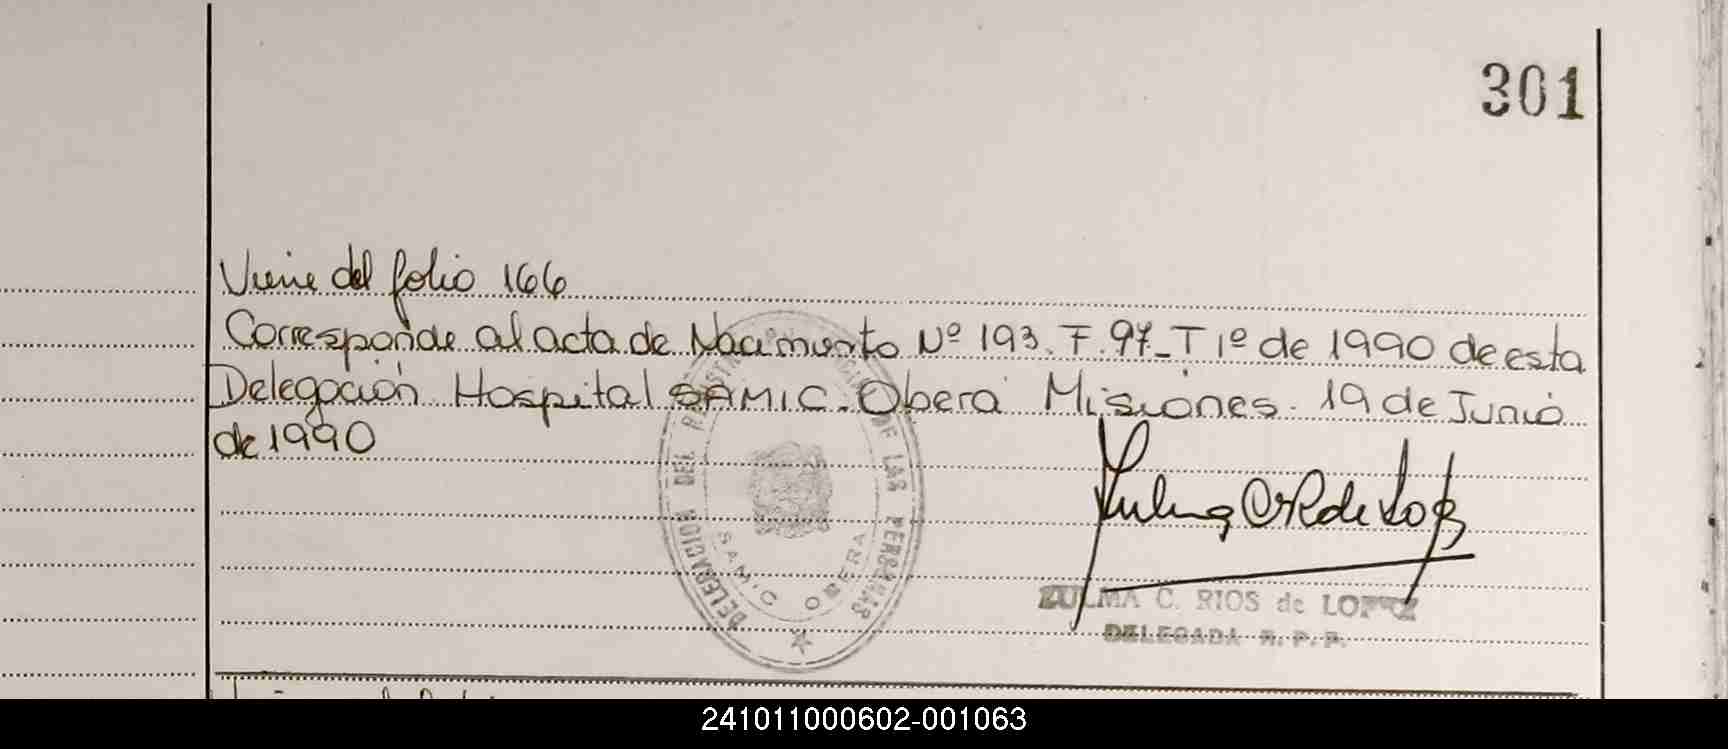 301
Viene del folio 166
Corresponde al acta de Nacimiento Nº 193. F. 97_T 1º de 1990 de esta
Delegación Hospital SAMIC. Oberá Misiones. 19 de Junio
de 1990
DELEGACION DEL REGISTRO DE LAS PERSONAS
SAMIC OBERA
ZULMA C. RIOS de LOPEZ
DELEGADA R. P. P.
241011000602-001063